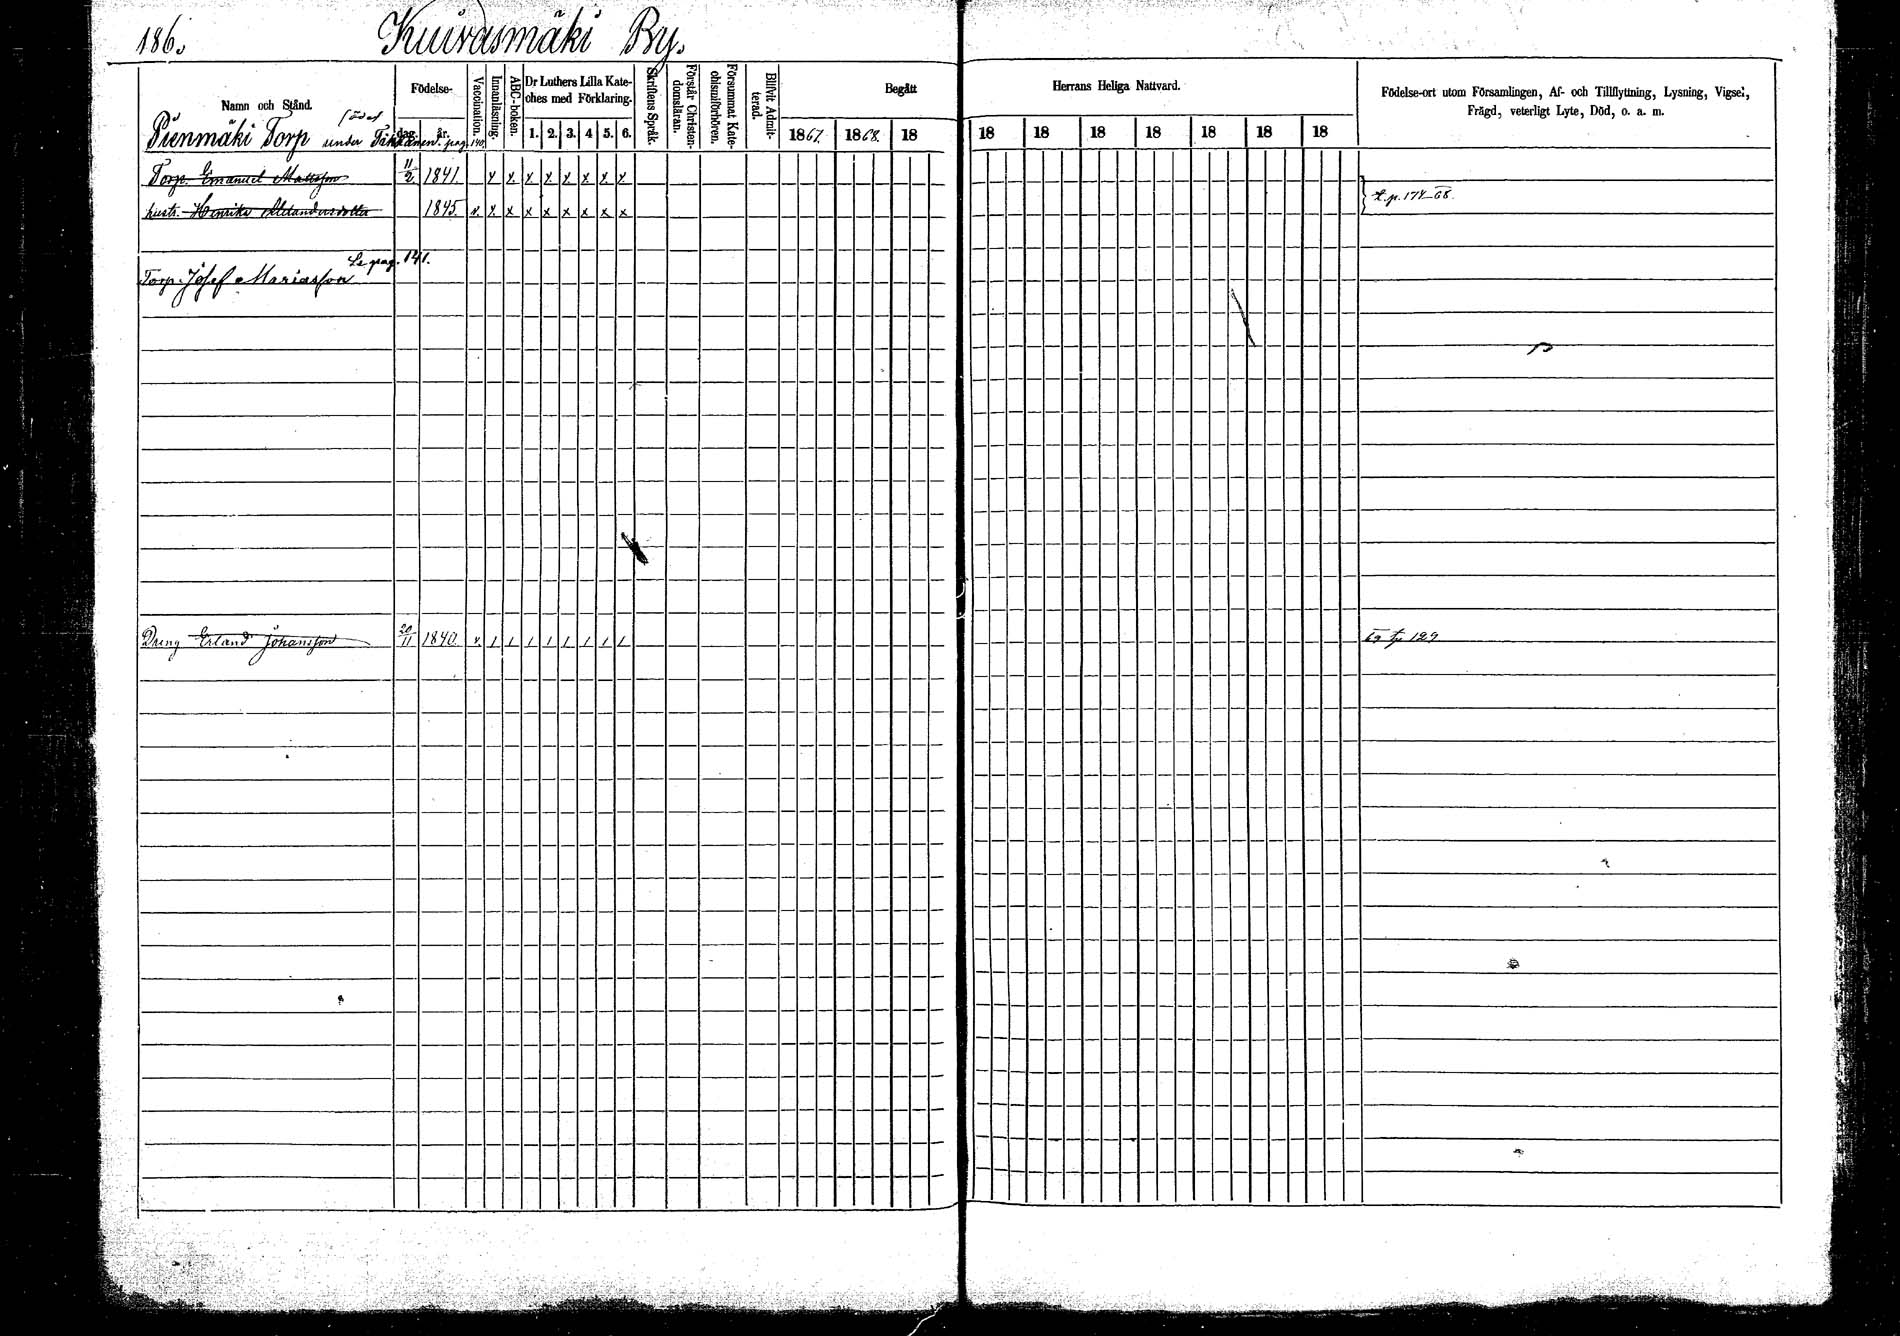 186. Kuivasmäki By.
Namn och Stånd.
Födelse-
dag. år.
Vaccination.
Innanläsning.
ABC-boken.
Dr Luthers Lilla Kate-
ches med Förklaring.
1. 2. 3. 4 5. 6.
Skriftens Språk.
Förstår Christen-
domsläran.
Försummat Kate-
chismiförhören.
Blifvit Admit-
terad.
Begått
1867. 1868. 18
Herrans Heliga Nattvard.
18 18 18 18 18 18 18
Födelse-ort utom Församlingen, Af- och Tillflyttning, Lysning, Vigsel,
Frägd, veterligt Lyte, Död, o. a. m.
Pienmäki Torp under pag. 140.
Torp. Emanuel Mattsson 11/2. 1841. x x x x x x x x
hustr. Henrika 1845. v. x x x x x x x x t. p. 174–68.
Se pag. 141.
Torp. Josef Mariasson
Dreng Erland Johansson 20/11 1840. v. / / / / / / / / 69 tp 129